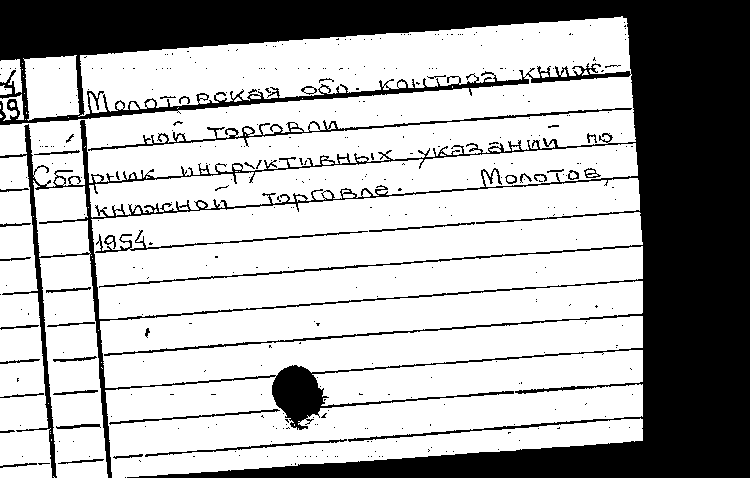 4
39
Молотовская обл. контора книж-
ной торговли
Сборник инсруктивных указаний по
книжной торговле. Молотов,
1954.